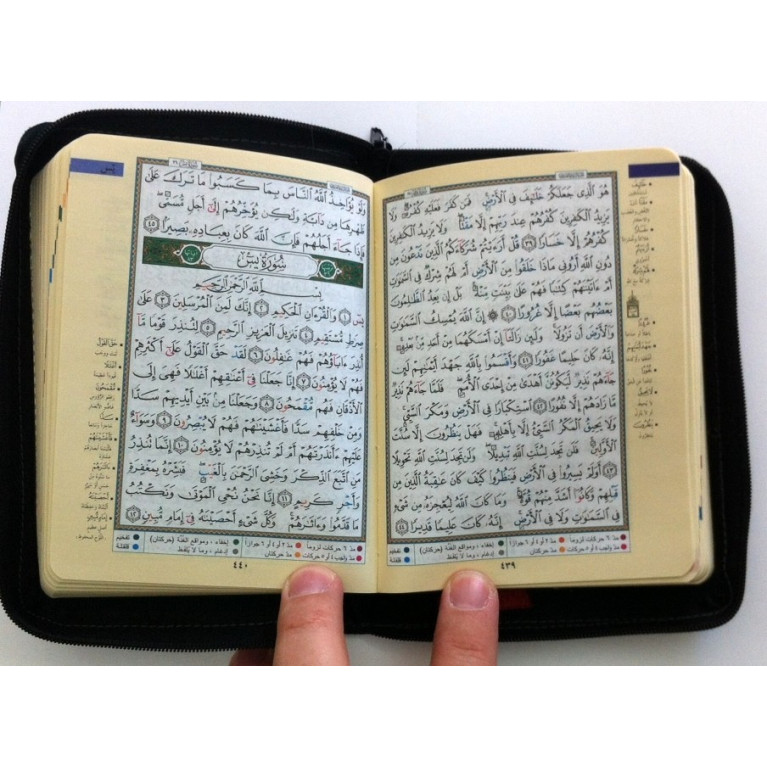 هُوَ الَّذِى جَعَلَكُمْ خَلَٰٓئِفَ فِى الْأَرْضِ فَمَن كَفَرَ فَعَلَيْهِ كُفْرُهُۥ وَلَا
يَزِيدُ الْكَٰفِرِينَ كُفْرُهُمْ عِندَ رَبِّهِمْ إِلَّا مَقْتًا وَلَا يَزِيدُ الْكَٰفِرِينَ
كُفْرُهُمْ إِلَّا خَسَارًا ٣٩ قُلْ أَرَءَيْتُمْ شُرَكَآءَكُمُ الَّذِينَ تَدْعُونَ مِن
دُونِ اللَّهِ أَرُونِى مَاذَا خَلَقُوا مِنَ الْأَرْضِ أَمْ لَهُمْ شِرْكٌ فِى السَّمَٰوَٰتِ
أَمْ ءَاتَيْنَٰهُمْ كِتَٰبًا فَهُمْ عَلَىٰ بَيِّنَتٍ مِّنْهُ بَلْ إِن يَعِدُ الظَّٰلِمُونَ
بَعْضُهُم بَعْضًا إِلَّا غُرُورًا ٤٠ ۞ إِنَّ اللَّهَ يُمْسِكُ السَّمَٰوَٰتِ
وَالْأَرْضَ أَن تَزُولَا وَلَئِن زَالَتَآ إِنْ أَمْسَكَهُمَا مِنْ أَحَدٍ مِّنۢ بَعْدِهِۦٓ
إِنَّهُۥ كَانَ حَلِيمًا غَفُورًا ٤١ وَأَقْسَمُوا بِاللَّهِ جَهْدَ أَيْمَٰنِهِمْ لَئِن
جَآءَهُمْ نَذِيرٌ لَّيَكُونُنَّ أَهْدَىٰ مِنْ إِحْدَى الْأُمَمِ فَلَمَّا جَآءَهُمْ نَذِيرٌ
مَّا زَادَهُمْ إِلَّا نُفُورًا ٤٢ اسْتِكْبَارًا فِى الْأَرْضِ وَمَكْرَ السَّيِّئِ
وَلَا يَحِيقُ الْمَكْرُ السَّيِّئُ إِلَّا بِأَهْلِهِۦ فَهَلْ يَنظُرُونَ إِلَّا سُنَّتَ
الْأَوَّلِينَ فَلَن تَجِدَ لِسُنَّتِ اللَّهِ تَبْدِيلًا وَلَن تَجِدَ لِسُنَّتِ اللَّهِ تَحْوِيلًا
٤٣ أَوَلَمْ يَسِيرُوا فِى الْأَرْضِ فَيَنظُرُوا كَيْفَ كَانَ عَٰقِبَةُ الَّذِينَ مِن
قَبْلِهِمْ وَكَانُوٓا أَشَدَّ مِنْهُمْ قُوَّةً وَمَا كَانَ اللَّهُ لِيُعْجِزَهُۥ مِن شَىْءٍ
فِى السَّمَٰوَٰتِ وَلَا فِى الْأَرْضِ إِنَّهُۥ كَانَ عَلِيمًا قَدِيرًا ٤٤
مدّ ٦ حركات لزوماً مدّ ٢ أو ٤ أو ٦ جوازاً إخفاء، ومواقع الغنّة (حركتان) تفخيم
مدّ واجب ٤ أو ٥ حركات مدّ حركتان إدغام، وما لا يلفظ قلقلة
٤٣٩
يس
وَلَوْ يُؤَاخِذُ اللَّهُ النَّاسَ بِمَا كَسَبُوا مَا تَرَكَ عَلَىٰ
ظَهْرِهَا مِن دَآبَّةٍ وَلَٰكِن يُؤَخِّرُهُمْ إِلَىٰٓ أَجَلٍ مُّسَمًّى
فَإِذَا جَآءَ أَجَلُهُمْ فَإِنَّ اللَّهَ كَانَ بِعِبَادِهِۦ بَصِيرًا ٤٥
سُورَةُ يسٓ
بِسْمِ اللَّهِ الرَّحْمَٰنِ الرَّحِيمِ
يسٓ ١ وَالْقُرْءَانِ الْحَكِيمِ ٢ إِنَّكَ لَمِنَ الْمُرْسَلِينَ ٣ عَلَىٰ
صِرَٰطٍ مُّسْتَقِيمٍ ٤ تَنزِيلَ الْعَزِيزِ الرَّحِيمِ ٥ لِتُنذِرَ قَوْمًا مَّآ
أُنذِرَ ءَابَآؤُهُمْ فَهُمْ غَٰفِلُونَ ٦ لَقَدْ حَقَّ الْقَوْلُ عَلَىٰٓ أَكْثَرِهِمْ
فَهُمْ لَا يُؤْمِنُونَ ٧ إِنَّا جَعَلْنَا فِىٓ أَعْنَٰقِهِمْ أَغْلَٰلًا فَهِىَ إِلَى
الْأَذْقَانِ فَهُم مُّقْمَحُونَ ٨ وَجَعَلْنَا مِنۢ بَيْنِ أَيْدِيهِمْ سَدًّا
وَمِنْ خَلْفِهِمْ سَدًّا فَأَغْشَيْنَٰهُمْ فَهُمْ لَا يُبْصِرُونَ ٩ وَسَوَآءٌ
عَلَيْهِمْ ءَأَنذَرْتَهُمْ أَمْ لَمْ تُنذِرْهُمْ لَا يُؤْمِنُونَ ١٠ إِنَّمَا تُنذِرُ
مَنِ اتَّبَعَ الذِّكْرَ وَخَشِىَ الرَّحْمَٰنَ بِالْغَيْبِ فَبَشِّرْهُ بِمَغْفِرَةٍ
وَأَجْرٍ كَرِيمٍ ١١ إِنَّا نَحْنُ نُحْىِ الْمَوْتَىٰ وَنَكْتُبُ
مَا قَدَّمُوا وَءَاثَٰرَهُمْ وَكُلَّ شَىْءٍ أَحْصَيْنَٰهُ فِىٓ إِمَامٍ مُّبِينٍ ١٢
مدّ ٦ حركات لزوماً مدّ ٢ أو ٤ أو ٦ جوازاً إخفاء، ومواقع الغنّة (حركتان) تفخيم
مدّ واجب ٤ أو ٥ حركات مدّ حركتان إدغام، وما لا يلفظ قلقلة
٤٤٠